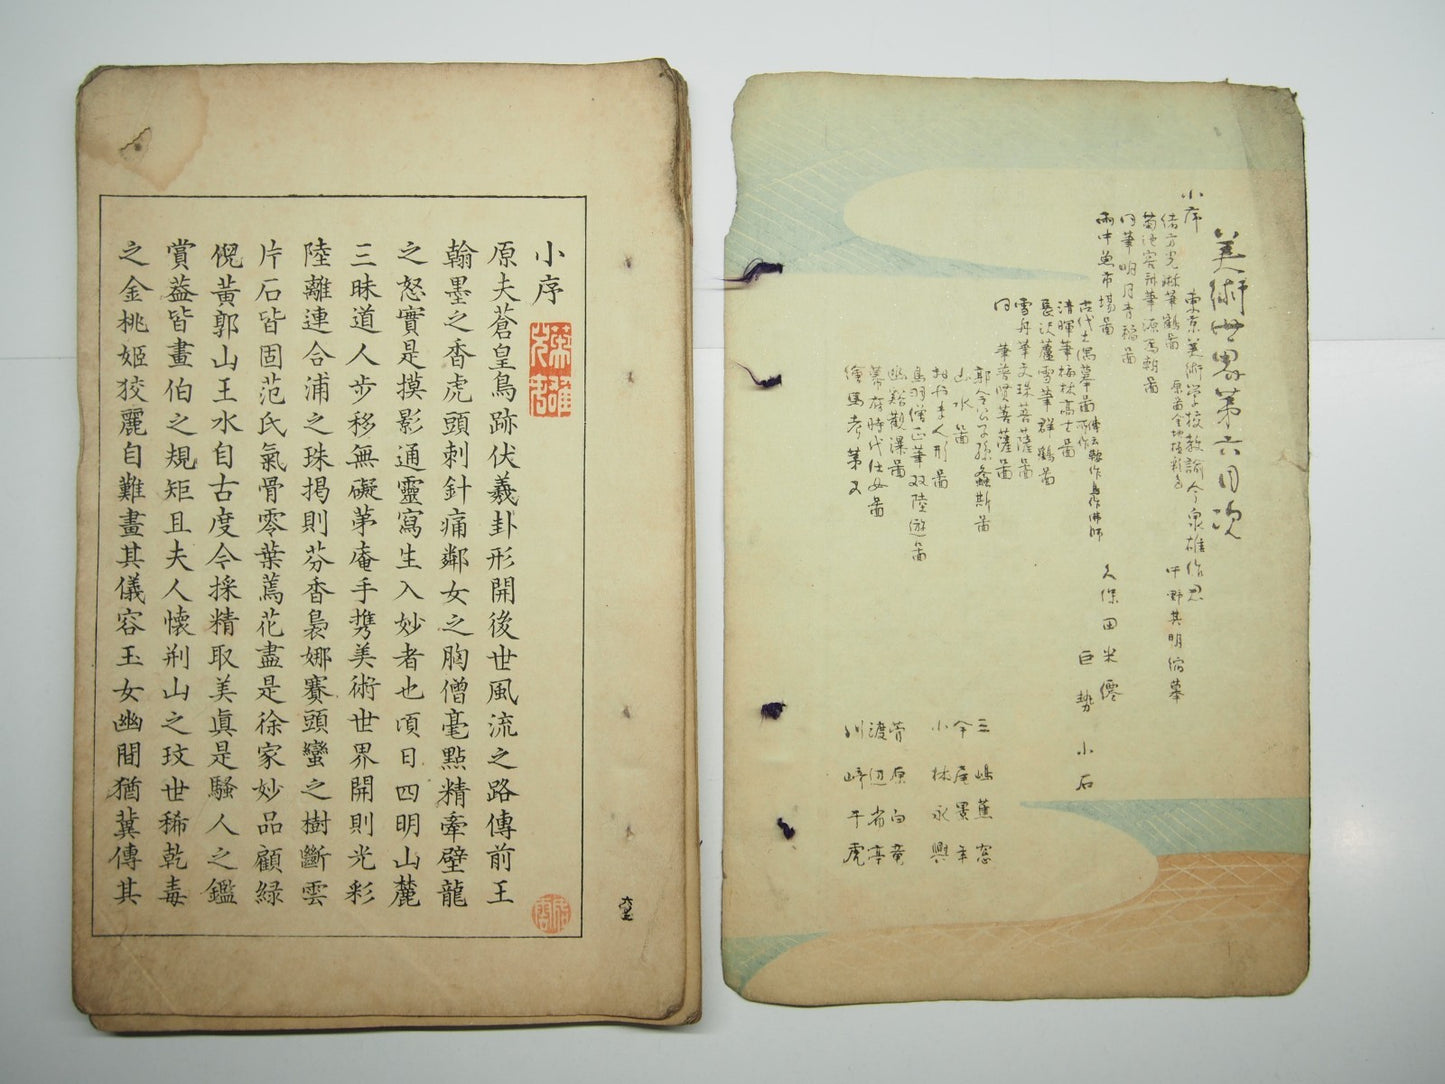 美術世界第六目次
小序 東京美術学校教諭 今泉雄作
緒方光琳筆鶴図
菊池容斎筆源為朝図
同筆明月青稲図
雨中魚市場図 久保田米僊
古代土偶墓
清暉筆梅枝高士図
長沢蘆雪筆群鶴図
雪舟筆文珠菩薩図
同筆普賢菩薩図
郭令公子孫螽斯図 三嶋蕉窓
山水図 今尾景年
小林永興
鳥羽僧正筆双陸遊図
幽谿観瀑図 渡辺省亭
幕府時代仕女図 川崎千虎
絵馬考第又
巨勢小石
菅原白竜
小序
原夫蒼皇鳥跡伏羲卦形開後世風流之路傳前王
翰墨之香虎頭刺針痛鄰女之胸僧毫點精牽壁龍
之怒實是摸影通靈寫生入妙者也頃日四明山麓
三昧道人步移無礙茅庵手携美術世界開則光彩
陸離連合浦之珠揭則芬香裊娜賽頭蠻之樹斷雲
片石皆固范氏氣骨零葉蔫花盡是徐家妙品顧緑
倪黃郭山王水自古度令採精取美眞是騷人之鑑
賞葢皆畫伯之規矩且夫人懷荊山之玟世稀乾毒
之金桃姬狡麗自難畫其儀容玉女幽間猶冀傳其